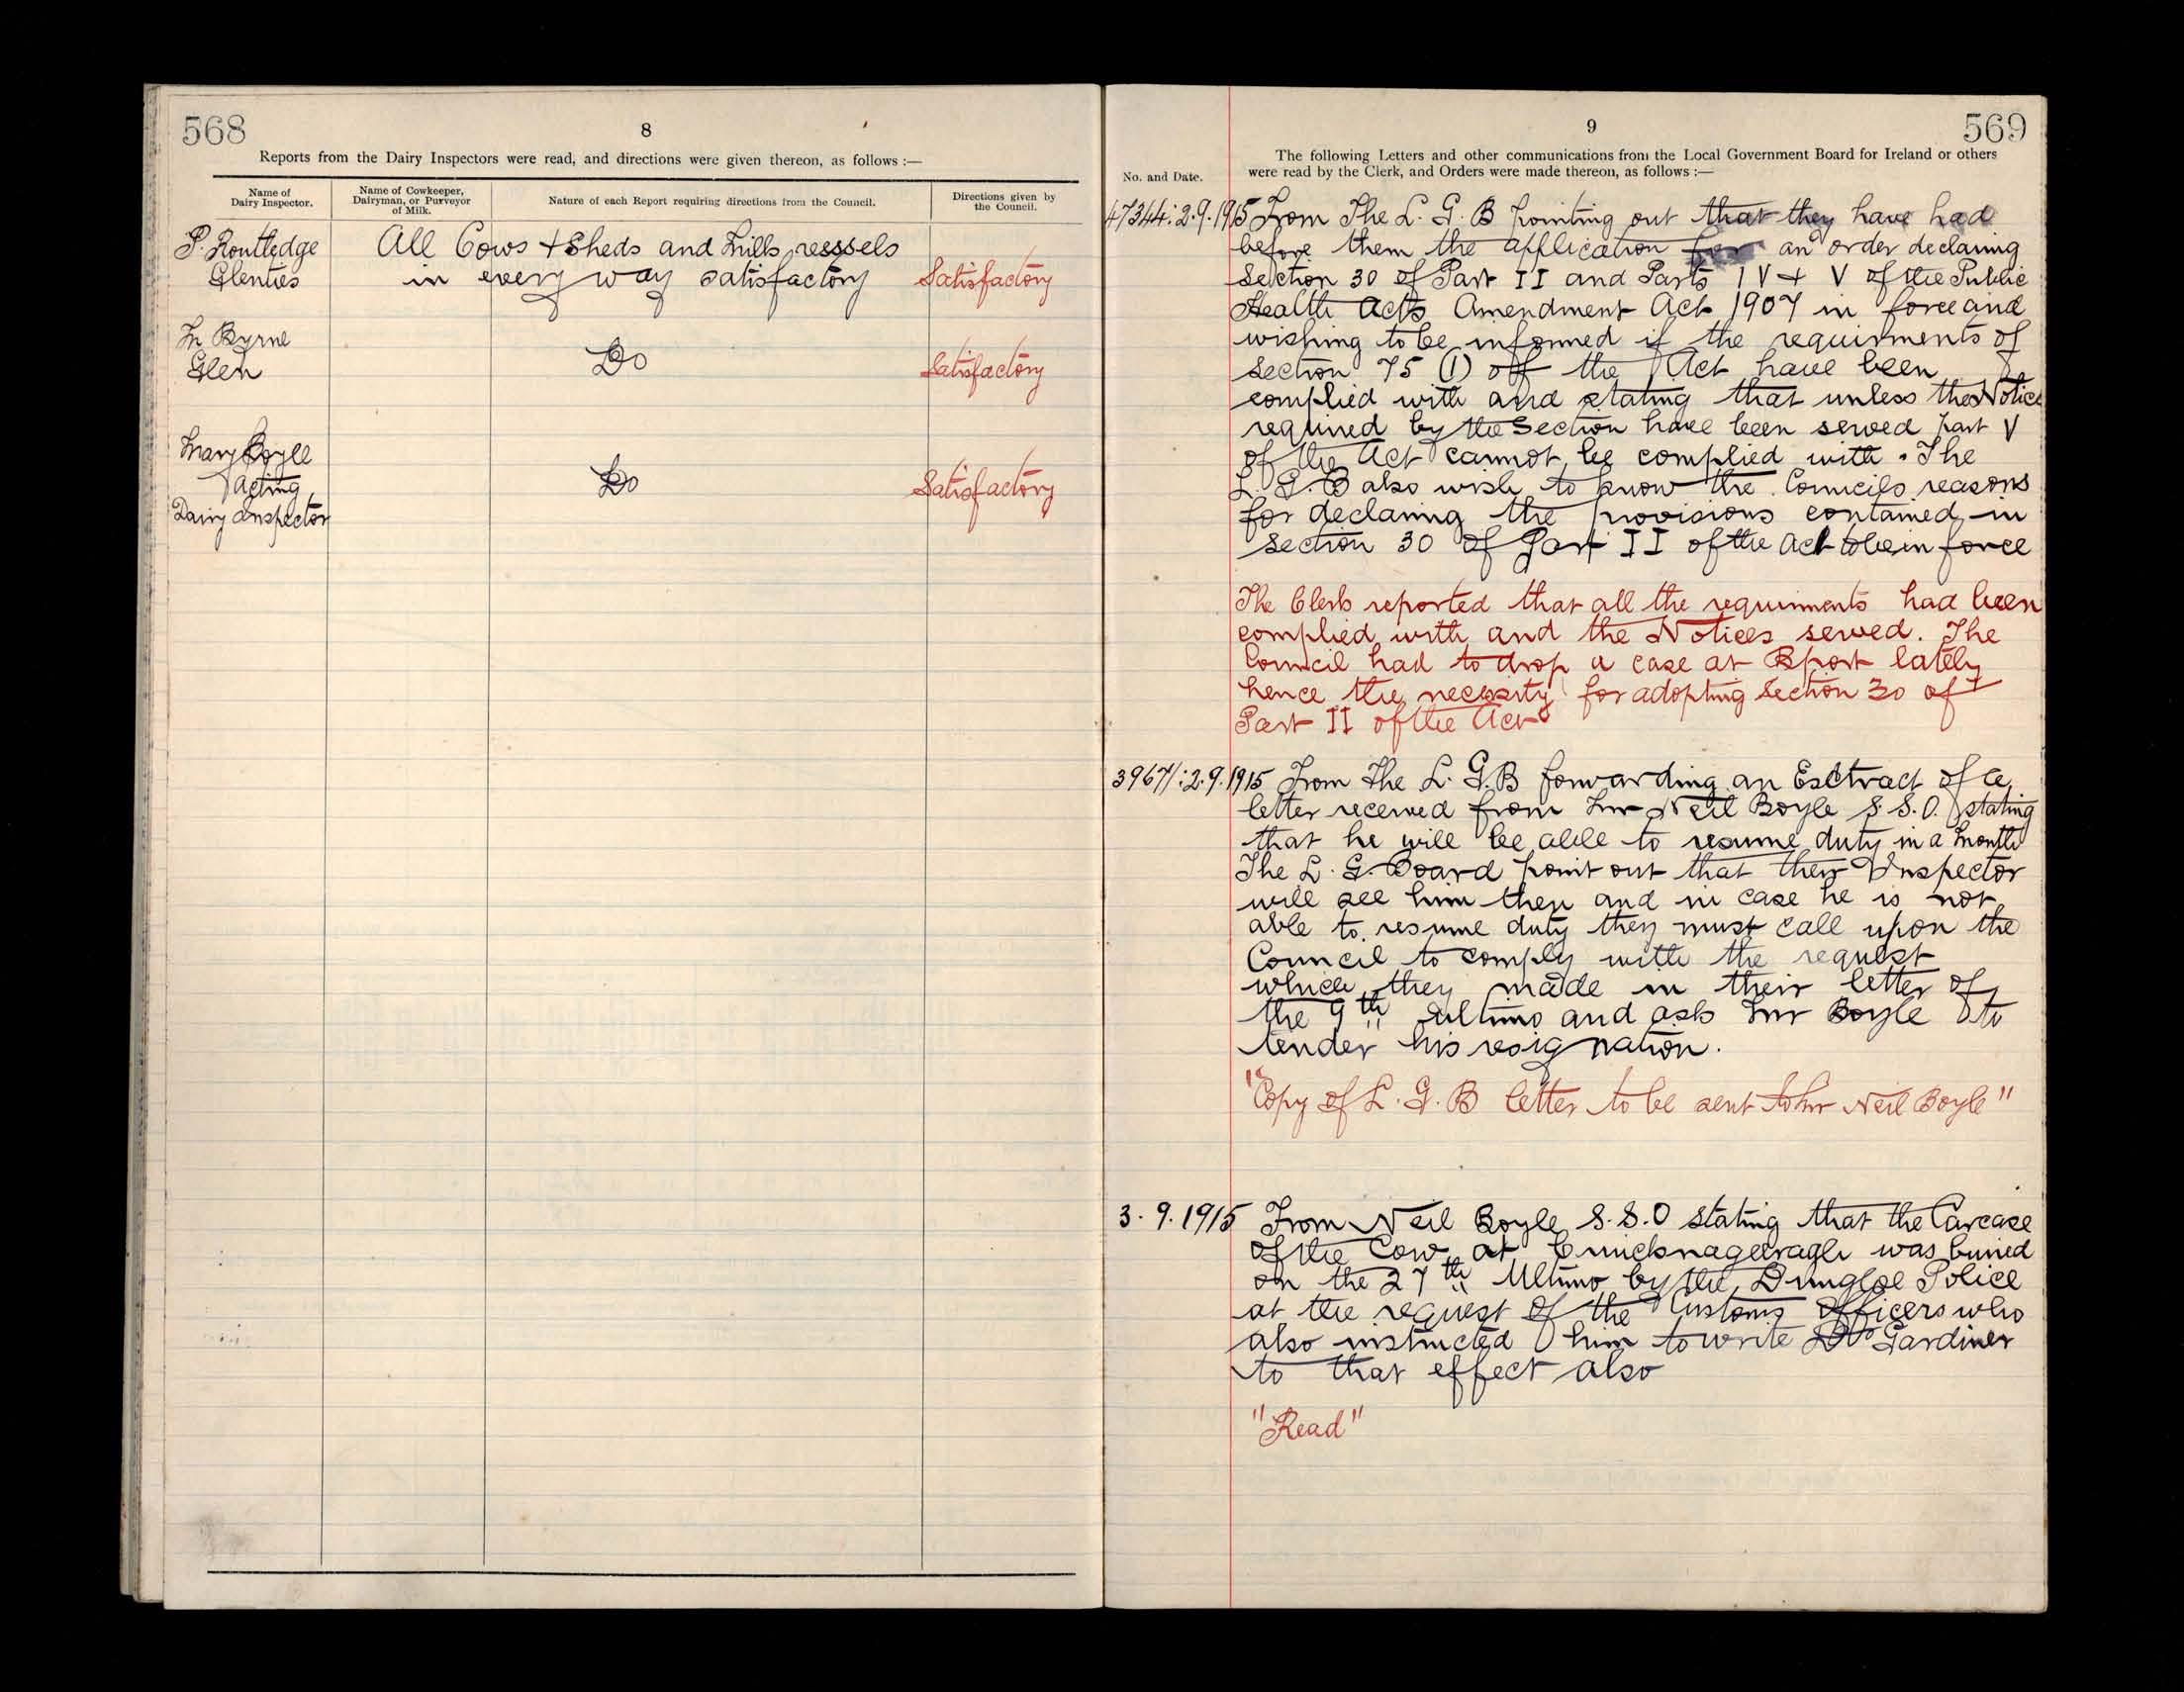 568
8
Reports from the Dairy Inspectors were read, and directions were given thereon, as follows :—
Name of Dairy Inspector.
Name of Cowkeeper, Dairyman, or Purveyor of Milk.
Nature of each Report requiring directions from the Council.
Directions given by the Council.
P. Routledge
Glenties
All Cows + Sheds and Milk vesssels
in every way satisfactory
Satisfactory
M Byrne
Glen
Do
Satisfactory
Mary Boyle
Acting
Dairy Inspector
Do
Satisfactory
569
9
The following Letters and other communications from the Local Government Board for Ireland or others
were read by the Clerk, and Orders were made thereon, as follows :—
No. and Date.
47344:2.9.1915 From The L. G. B pointing out that they have had
before them the application for an order declaring
Section 30 of Part II and Parts IV + V of the Public
Health Acts Amendment Act 1907 in force and
wishing to be informed if the requirments of
Section 75 (1) off the Act have been
complied with and stating that unless the Notice
required by the Section have been served part V
of the Act cannot be complied with. The
L. G. B also wish to know the Councils reasons
for declaring the provisions contained in
Section 30 of Part II of the Act to be in force
The Clerk reported that all the requirments had been
complied with and the Notices served. The
Council had to drop a case at Bport lately
hence the necessity for adopting Section 30 of
Part II of the Act
39671:2.9.1915 From The L. G.B forwarding an Extract of a
letter received from Mr Neil Boyle S. S. O. stating
that he will be able to resume duty in a month
The L. G. Board point out that their Inspector
will see him then and in case he is not
able to resume duty they must call upon the
Council to comply with the request
which they made in their letter of
the 9th Ultimo and ask Mr Boyle to
tender his resignation.
"Copy of L. G. B letter to be sent to Mr Neil Boyle"
3. 9. 1915 From Neil Boyle S. S. O stating that the Carcase
of the Cow at Cruicknageeragh was buried
on the 27th Ultimo by the Dungloe Police
at the request of the Customs Officers who
also instructed him to write Dr Gardiner
to that effect also
"Read"